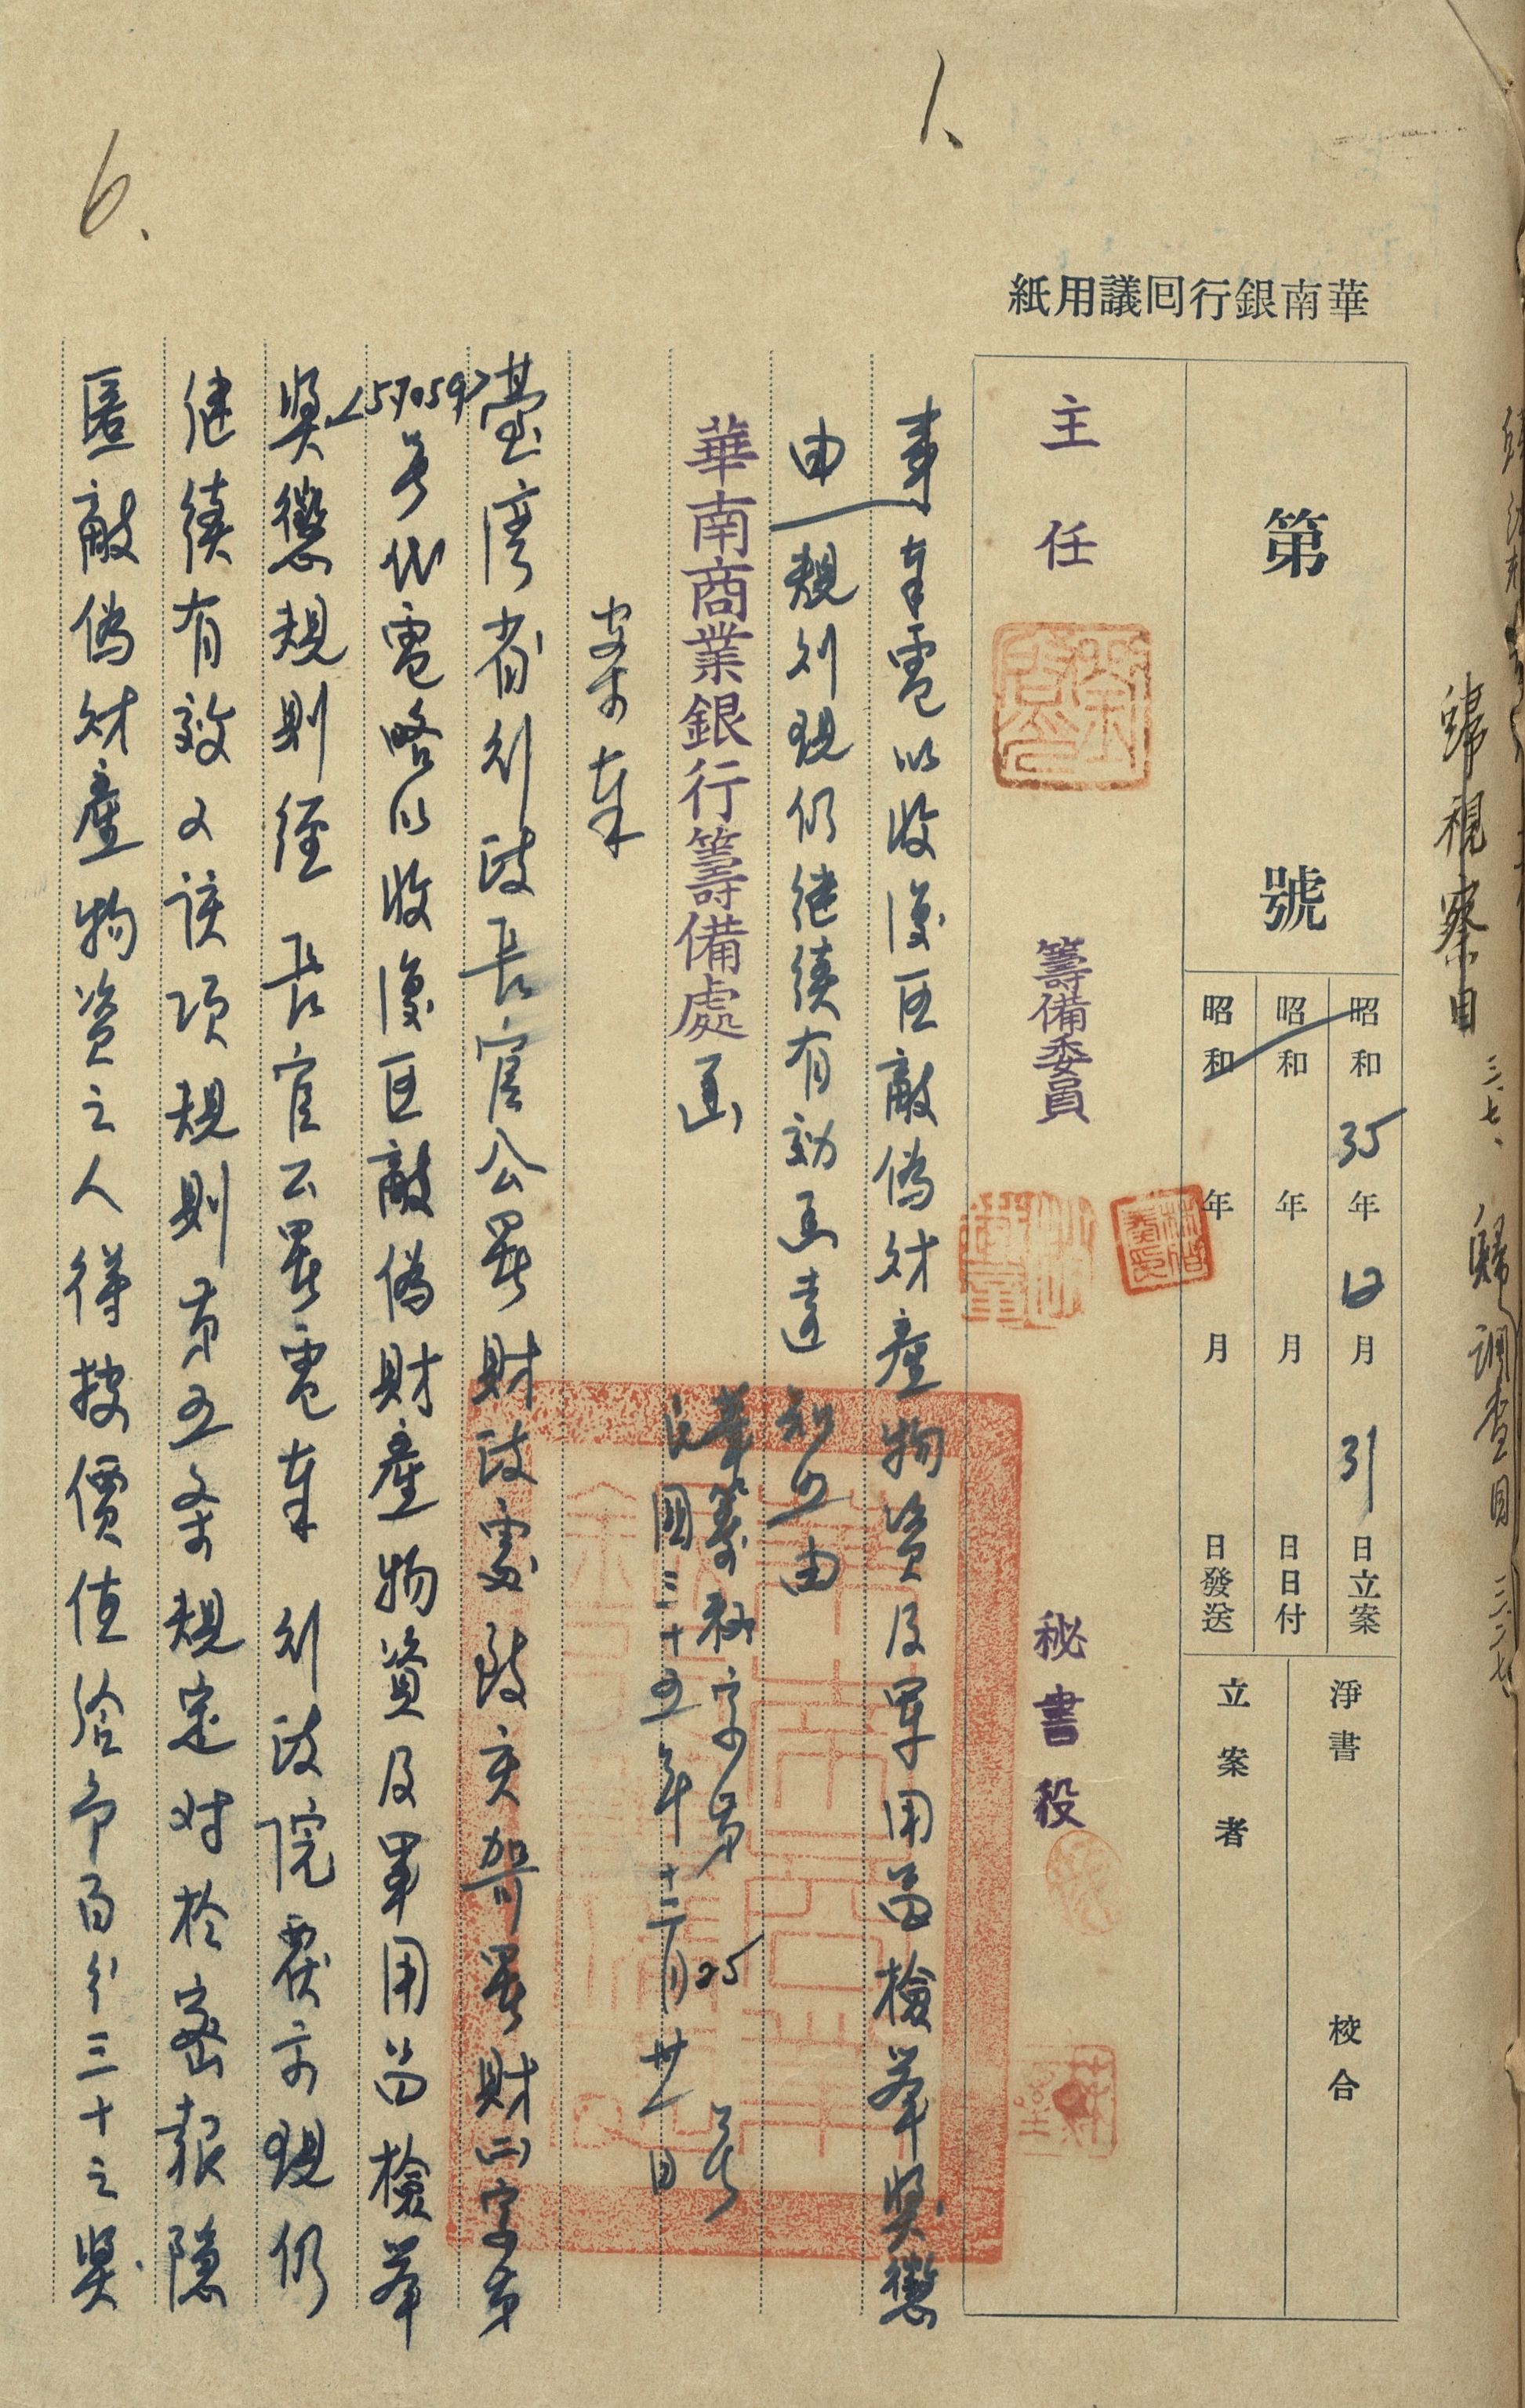 1、
6.
華南銀行回議用紙
第 號
昭和35年12月31日立案
昭和 年 月 日日付
昭和 年 月 日發送
淨書 校合
立案者
主任 籌備委員 秘書役
事 奉電以收復区敵偽財產物資及軍用品檢举奖懲
由 規则現仍继续有効函達 知照由
華南商業銀行籌備處函
華籌秘字第25号
民國三十五年十二月卅一日
案奉
臺湾省行政長官公署財政處致亥哿署財四字第
<57059>号代電略以收復区敵偽財產物資及軍用品檢举
奖懲規則經 長官公署電奉 行政院覆示現仍
继续有效又該項規則第五条規定对於密報隐
匿敵偽財產物资之人得按價值给予百分三十之奖
歸視察自 三.七、
歸調查